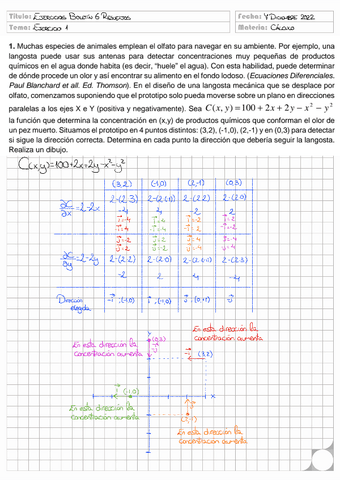 Título: Ejercicios Boletín 6 Resueltos
Fecha: 4 Diciembre 2022
Tema: Ejercicio 1
Materia: Cálculo
1. Muchas especies de animales emplean el olfato para navegar en su ambiente. Por ejemplo, una
langosta puede usar sus antenas para detectar concentraciones muy pequeñas de productos
químicos en el agua donde habita (es decir, "huele" el agua). Con esta habilidad, puede determinar
de dónde procede un olor y así encontrar su alimento en el fondo lodoso. (Ecuaciones Diferenciales.
Paul Blanchard et all. Ed. Thomson). En el diseño de una langosta mecánica que se desplace por
olfato, comenzamos suponiendo que el prototipo solo pueda moverse sobre un plano en direcciones
paralelas a los ejes X e Y (positiva y negativamente). Sea C(x, y) = 100 + 2x + 2y − x² − y²
la función que determina la concentración en (x,y) de productos químicos que conforman el olor de
un pez muerto. Situamos el prototipo en 4 puntos distintos: (3,2), (-1,0), (2,-1) y en (0,3) para detectar
si sigue la dirección correcta. Determina en cada punto la dirección que debería seguir la langosta.
Realiza un dibujo.
C(x,y)=100+2x+2y-x²-y²
(3,2) (-1,0) (2,-1) (0,3)
∂C/∂x = 2-2x 2-(2·3) 2-(2·(-1)) 2-(2·2) 2-(2·0)
-4 4 -2 2
∂C/∂y = 2-2y 2-(2·2) 2-(2·0) 2-(2·(-1)) 2-(2·3)
-2 2 4 -4
Dirección
elegida
En esta dirección la
concentración aumenta
(0,3)
En esta dirección la
concentración aumenta
(3,2)
(-1,0)
x
En esta dirección la
concentración aumenta
(2,-1)
En esta dirección la
concentración aumenta